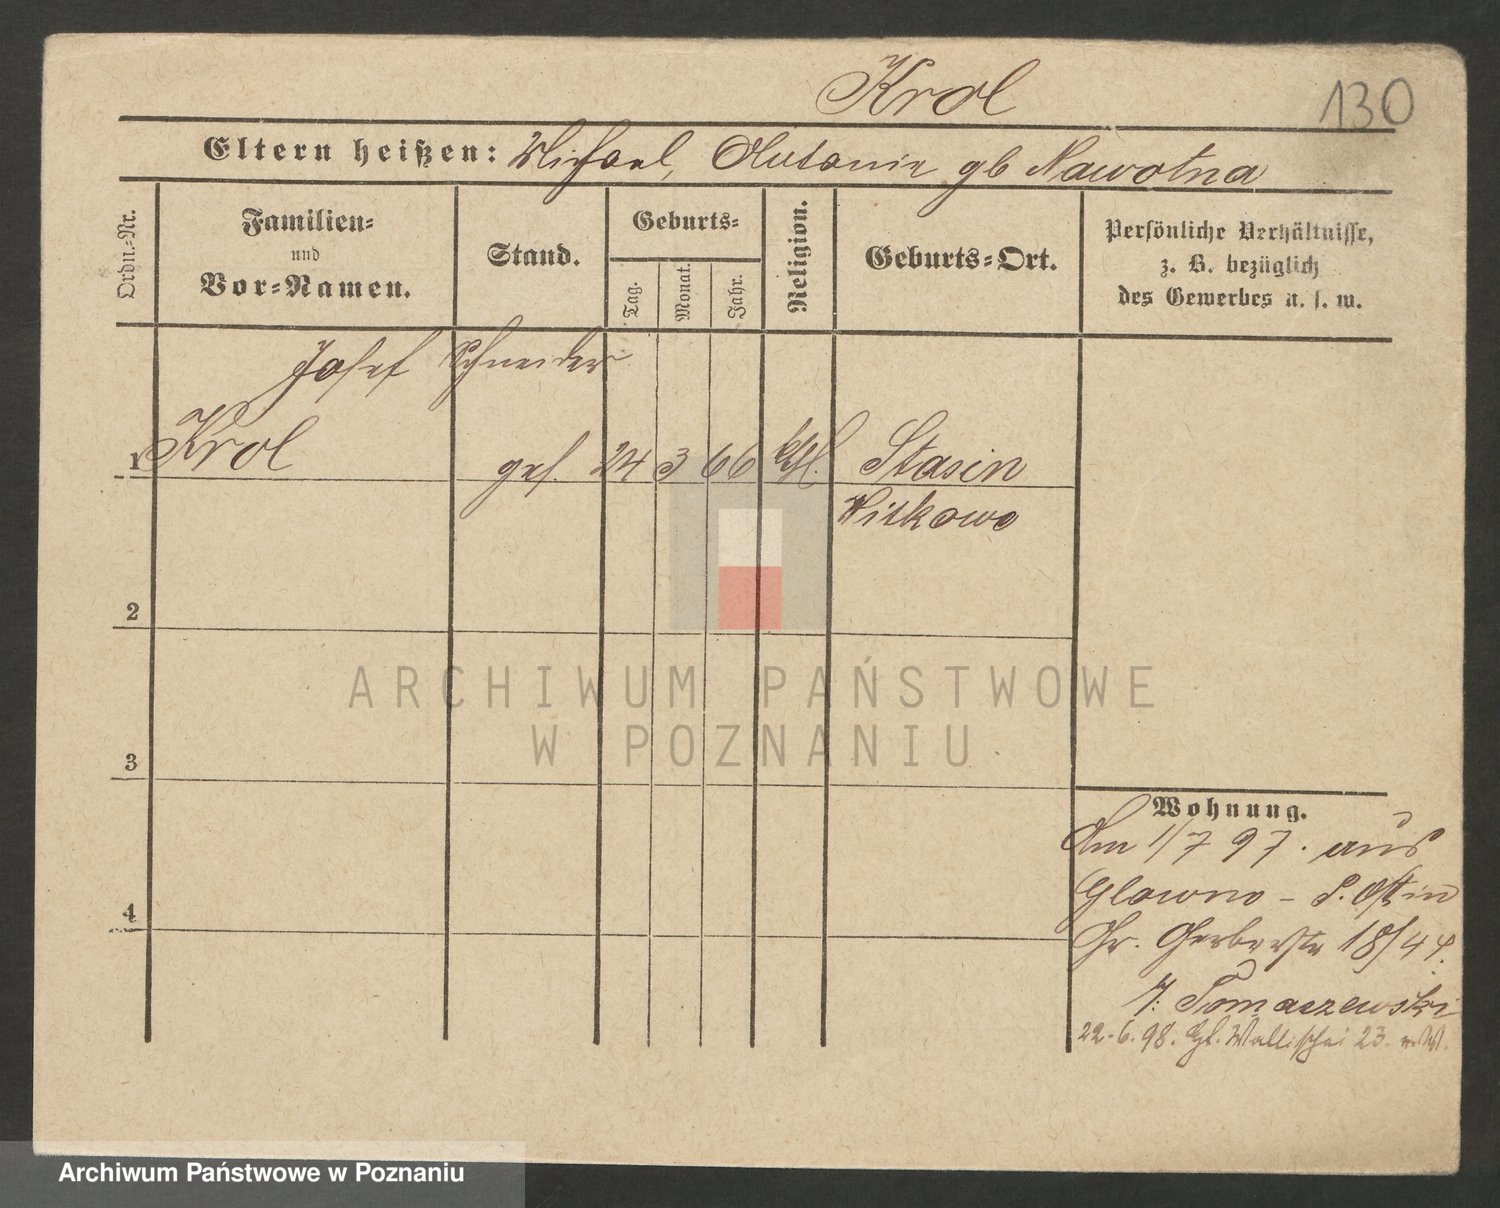 Krol
130
Eltern heißen: Michael, Antonie gb Nawotna
Ordn.-Nr.
Familien-
und
Vor-Namen.
Stand.
Geburts-
Tag.
Monat.
Jahr.
Religion.
Geburts-Ort.
Persönliche Verhältnisse,
z. B. bezüglich
des Gewerbes u. s. w.
Josef Schneider
1 Krol ges. 24 3 66 kth. Stasin
Witkowo
2
3
4
Wohnung.
Am 1/7 97. aus
Glowno - P. Ost in
Gr. Gerberstr 18/4
J. Tomaszewski
22.6.98. Wallischei 23.
ARCHIWUM PAŃSTWOWE
W POZNANIU
Archiwum Państwowe w Poznaniu